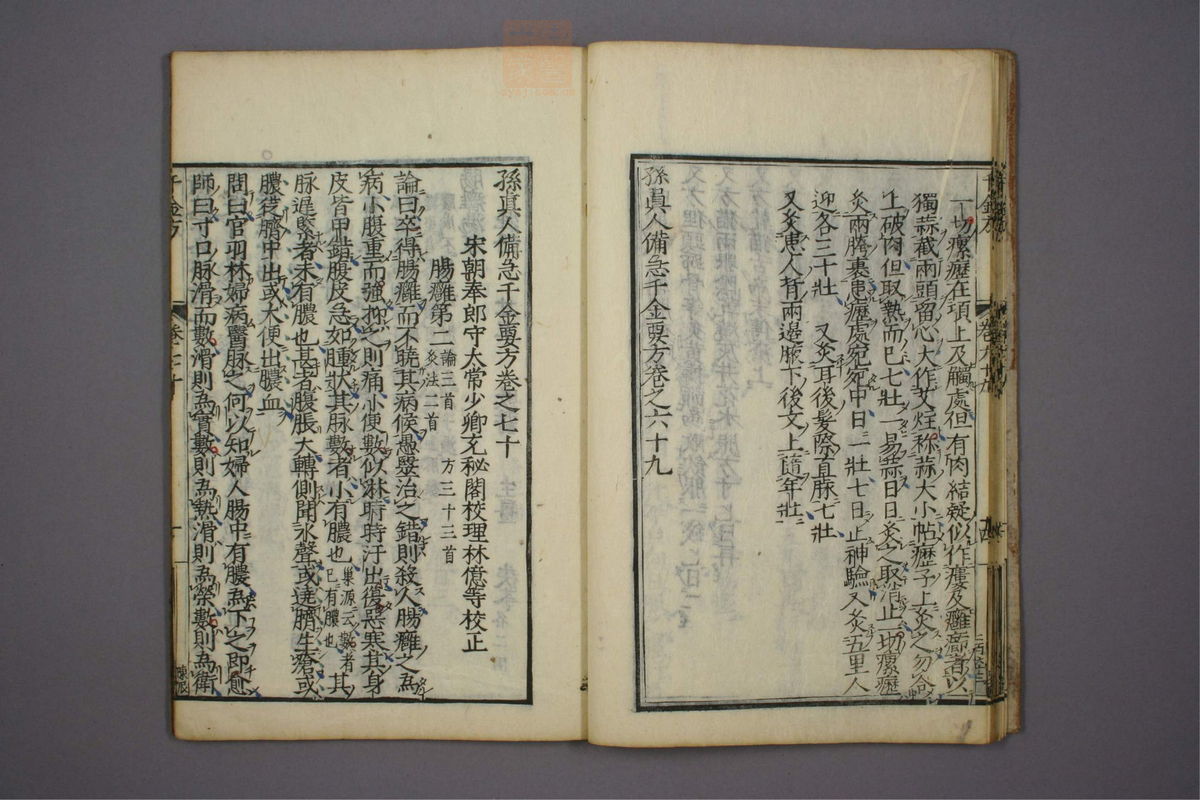 一切瘰癧在項上及觸處但有肉結凝似作瘻及癰癤者以
獨蒜截兩頭留心大作艾炷称蒜大小帖癧子上灸之勿令
上破肉但取熱而已七壯一易蒜日日灸之取消止一切瘰癧
灸兩胯裏患癧處宛宛中日一壯七日止神驗又灸五里人
迎各三十壯 又灸耳後髮際直脉七壯
又灸患人背兩邊腋下後文上隨年壯
孫真人備急千金要方卷之六十九
孫真人備急千金要方卷之七十
宋朝奉郎守太常少卿充秘閣校理林億等校正
腸癰第二 論三首 方三十三首 灸注二首
論曰卒得腸癰而不曉其病候愚醫治之錯則殺人腸癰之為
病小腹重而強抑之則痛小便數似淋時時汗出復惡寒其身
皮皆甲錯腹皮急如腫狀其脉數者小有膿也 巢源云數者已有膿也 其
脉遲緊者未有膿也甚者腹脹大轉側聞水聲或遶臍生瘡或
膿從臍中出或大便出膿血
問曰官羽林婦病醫脉之何以知婦人腸中有膿為下之即愈
師曰寸口脉滑而數滑則為實數則為熱滑則為榮數則為衛
千金方 卷七十